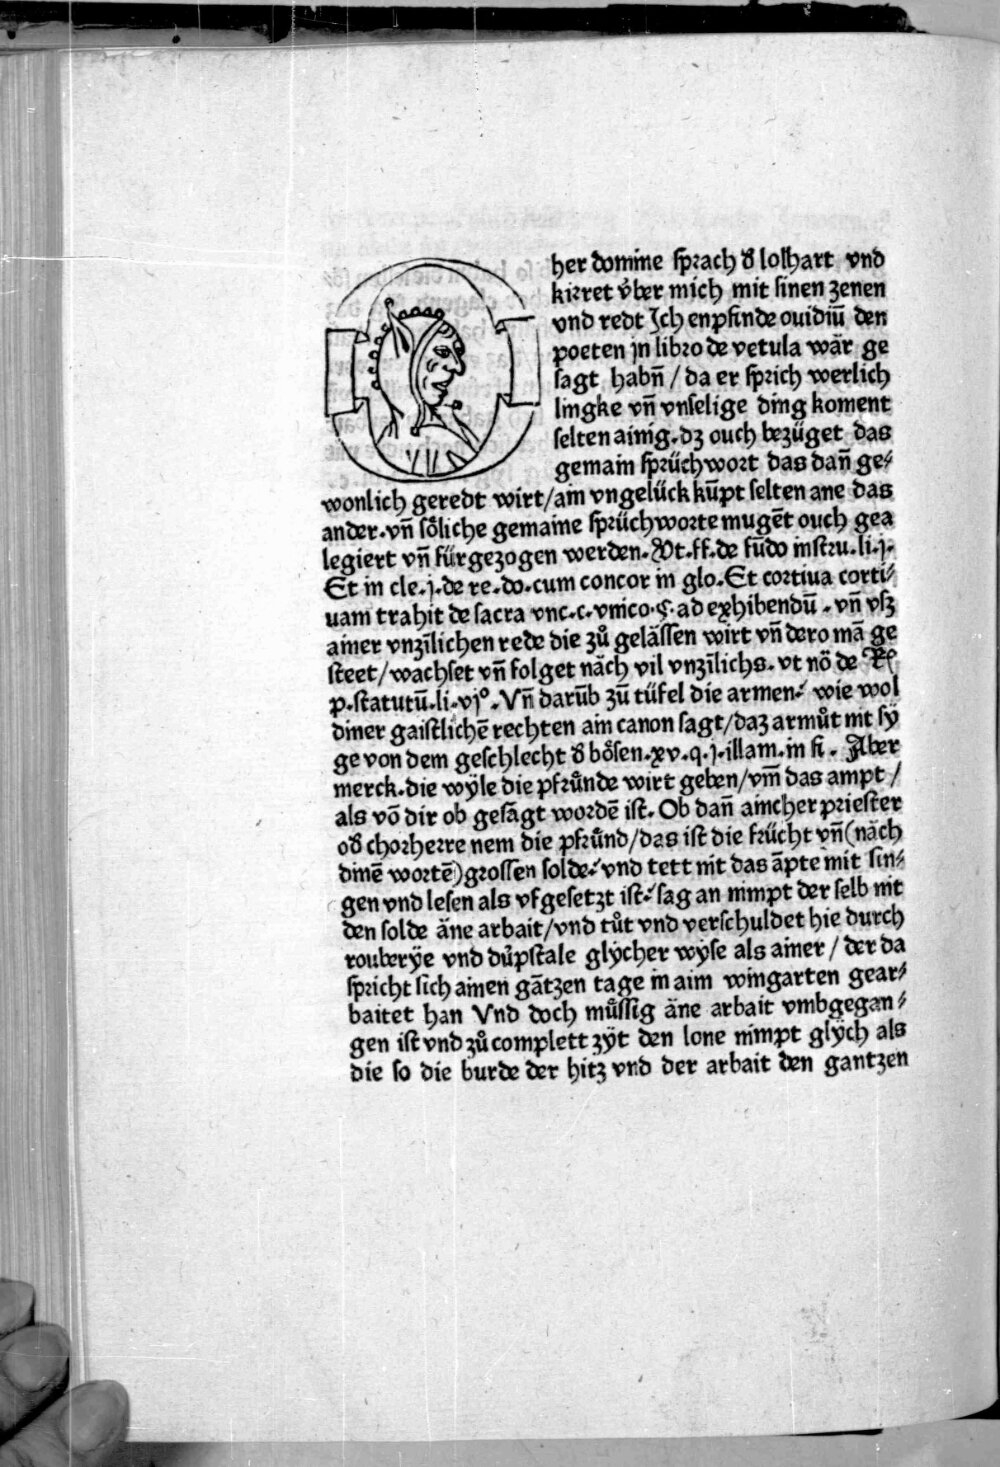 O her domine sprach đ lolhart vnd
kirret v̊ber mich mit sinen zenen
vnd redt Jch enpfinde ouidiū den
poeten jn libro de vetula wär ge
sagt habn̄ / da er sprich werlich
lingke vn̄ vnselige ding koment
selten ainig. dz ouch bezüget das
gemain sprüchwort das dan̄ ge⸗
wonlich geredt wirt/ain vngelück kūpt selten ane das
ander. vn̄ söliche gemaine sprüchworte mugēt ouch gea
legiert vn̄ fürgezogen werden. Vt. ff. de fūdo instru. li. j.
Et in cle. j. de re. do. cum concor in glo. Et cortiua corti⸗
uam trahit de sacra vnc. c. vnico. ꝯ. ad exhibendū. vn̄ vsz
ainer vnzīlichen rede die zů gelässen wirt vn̄ dero mā ge
steet/wachset vn̄ folget näch vil vnzīlichs. vt nō de
p. statutū. li. vjº. Vn̄ darūb zū tüfel die armen: wie wol
diner gaistlichē rechten ain canon sagt/daz armůt nit sÿ
ge von dem geschlecht đ bösen. xv. q. j. illam. in fi. Aber
merck. die wÿle die pfrůnde wirt geben/vm̄ das ampt /
als vō dir ob gesāgt wordē ist. Ob dan̄ aincher priester
ođ chorherre nem die pfrůnd/das ist die frücht vn̄ (näch
dinē wortē) grossen solde: vnd tett nit das āpte mit sin⸗
gen vnd lesen als vfgesetzt ist: sag an nimpt der selb nit
den solde äne arbait/vnd tůt vnd verschuldet hie durch
rouberÿe vnd důpstale glÿcher wÿse als ainer / der da
spricht sich ainen gātzen tage in aim wingarten gear⸗
baitet han Vnd doch můssig äne arbait vmbgegan⸗
gen ist vnd zů complett zÿt den lone nimpt glÿch als
die so die burde der hitz vnd der arbait den gantzen